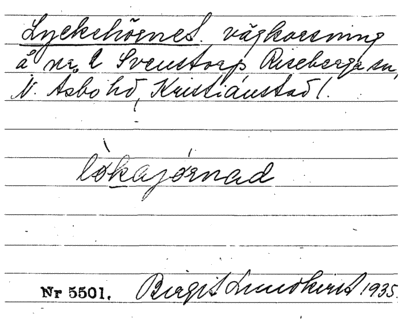 Lyckehögnet. vägkorsning
å nr. 2 Svenstorp Riseberga sn,
N. Asbo hd, Kristianstad l.
lòkajǿrnad
Nr 5501. Birgit Lundkvist 1935.